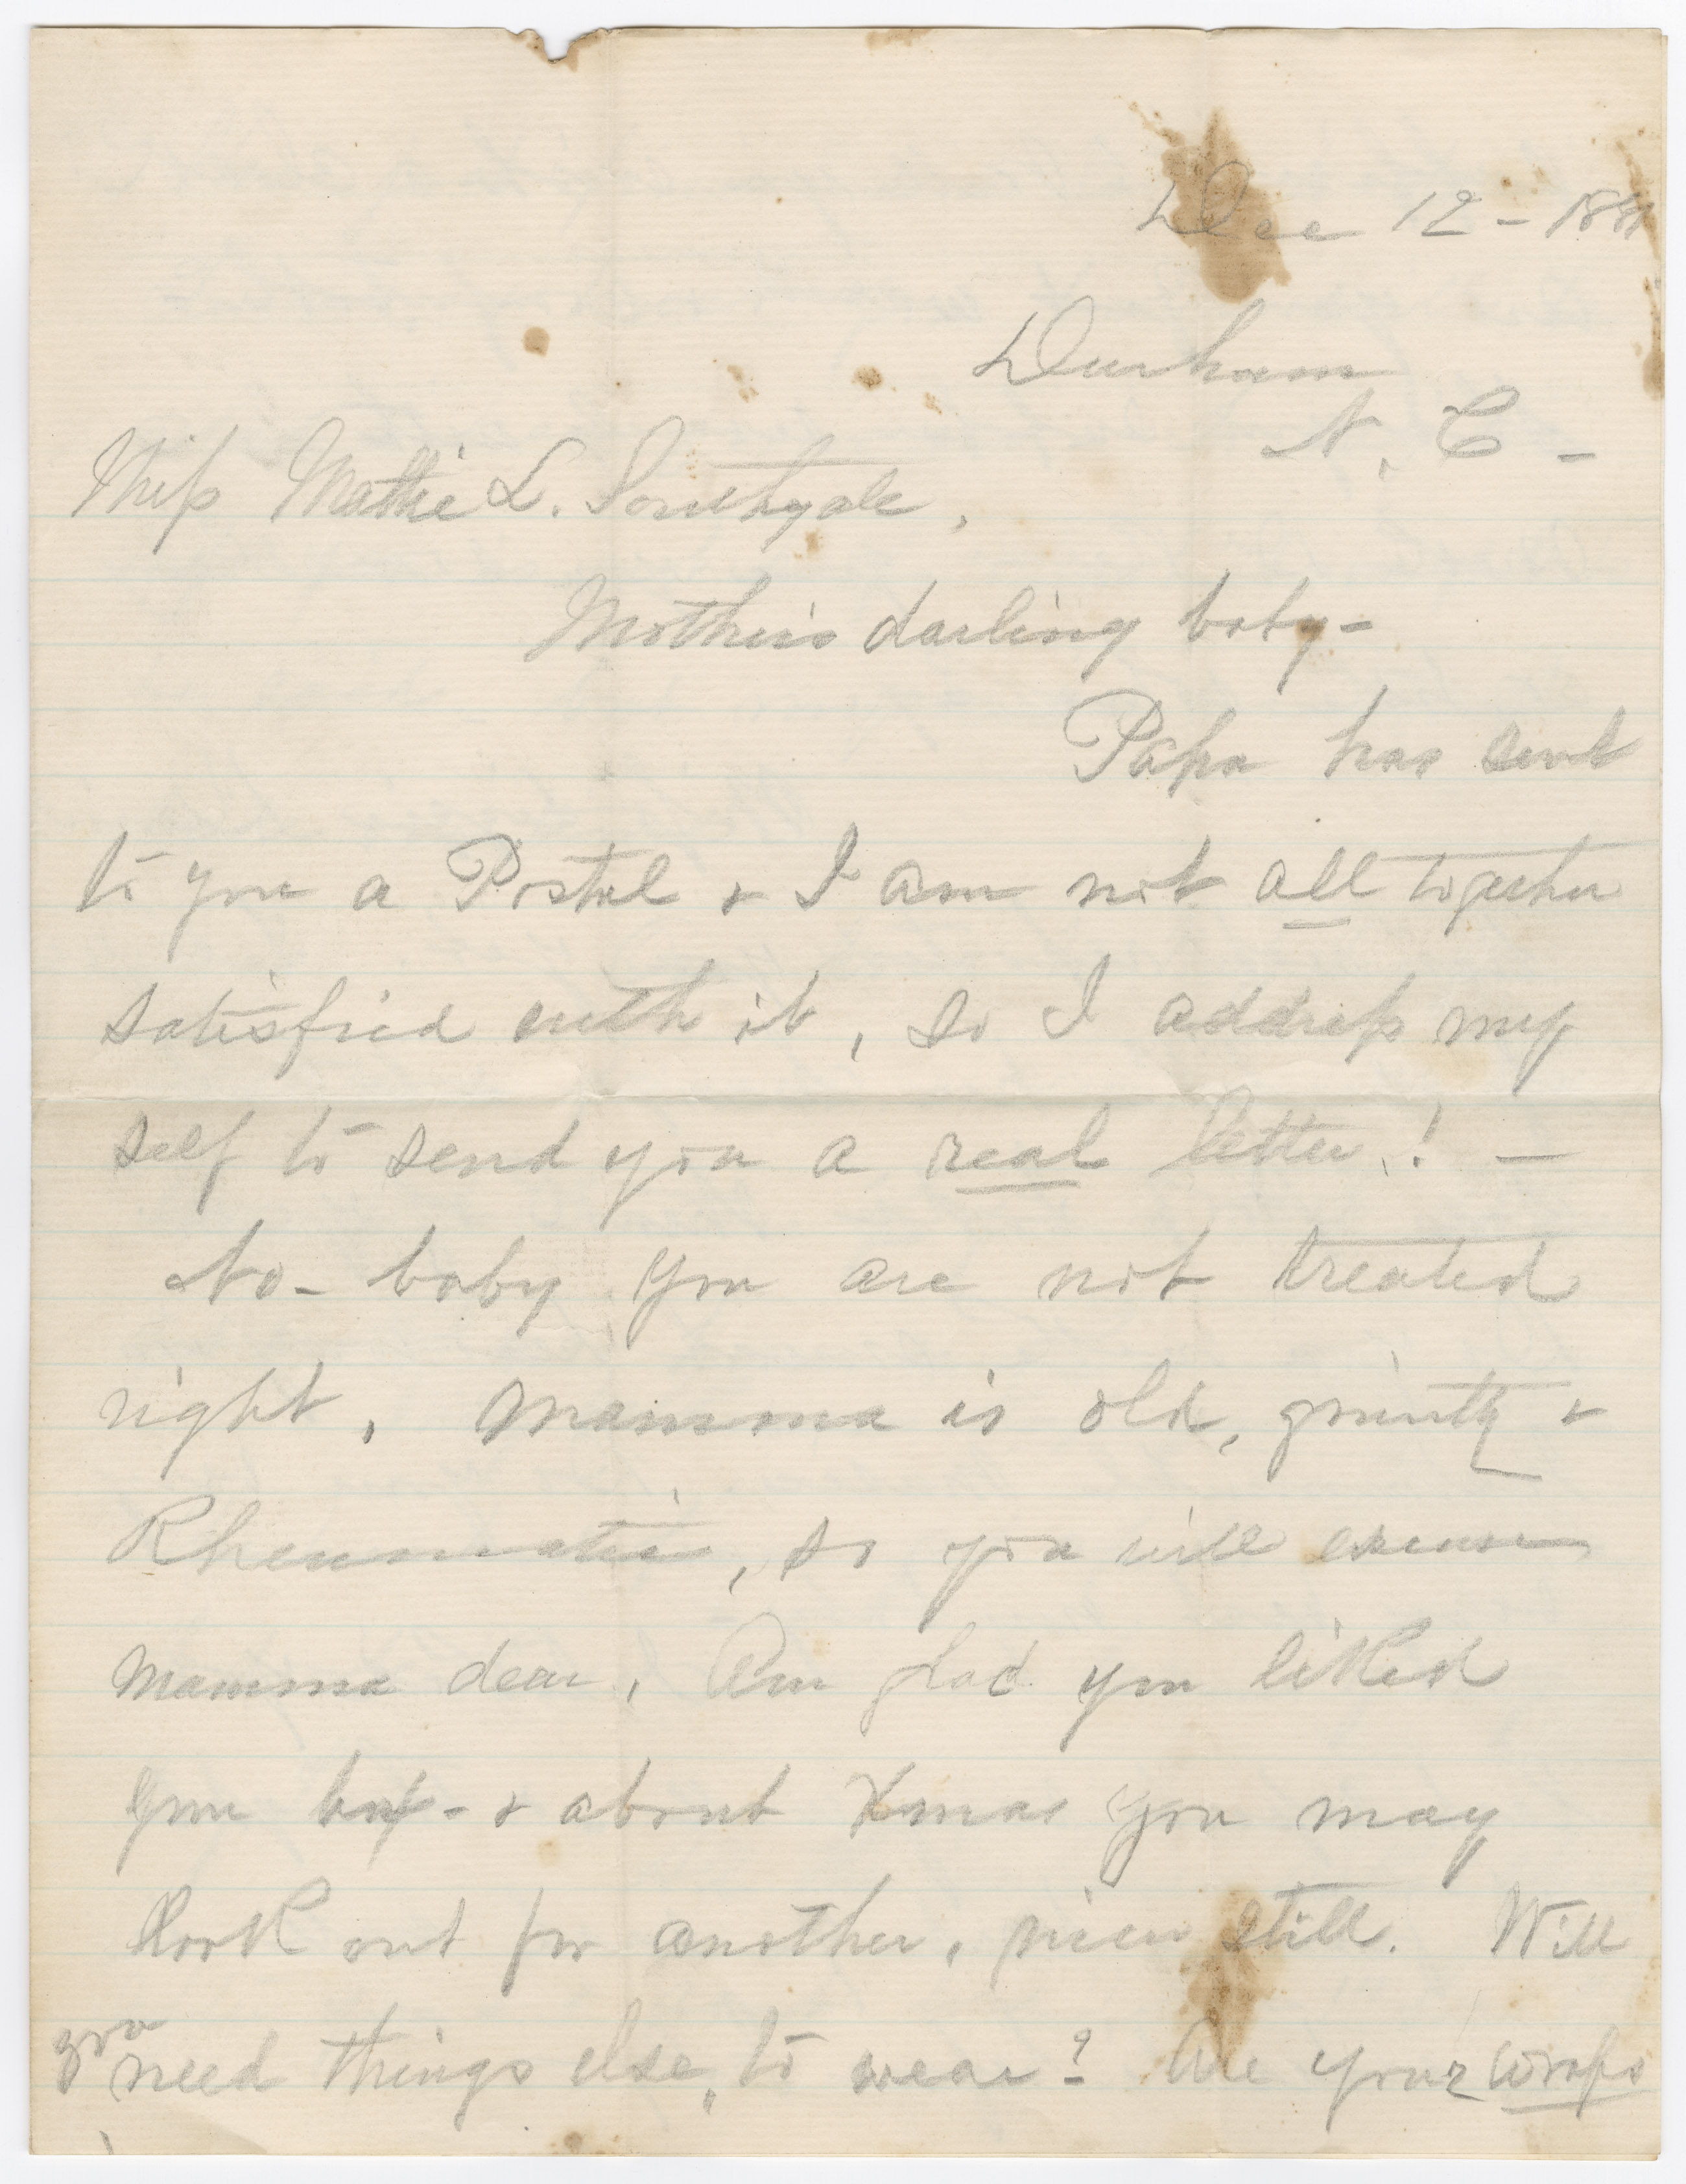 Dec 12 - 1881
Durham
N. C -
Miss Mattie L. Southgate,
Mother's darling baby-
Papa has sent
to you a Postal & I am not all together
satisfied with it, so I address my
self to send you a real letter! -
No- baby you are not treated
right. Mamma is old, grunty &
Rheumatic, so you will excuse
Mamma dear. Am glad you liked
your - & about Xmas you may
look out for another, nicer still. Will
you need things else, to wear? Are your wraps